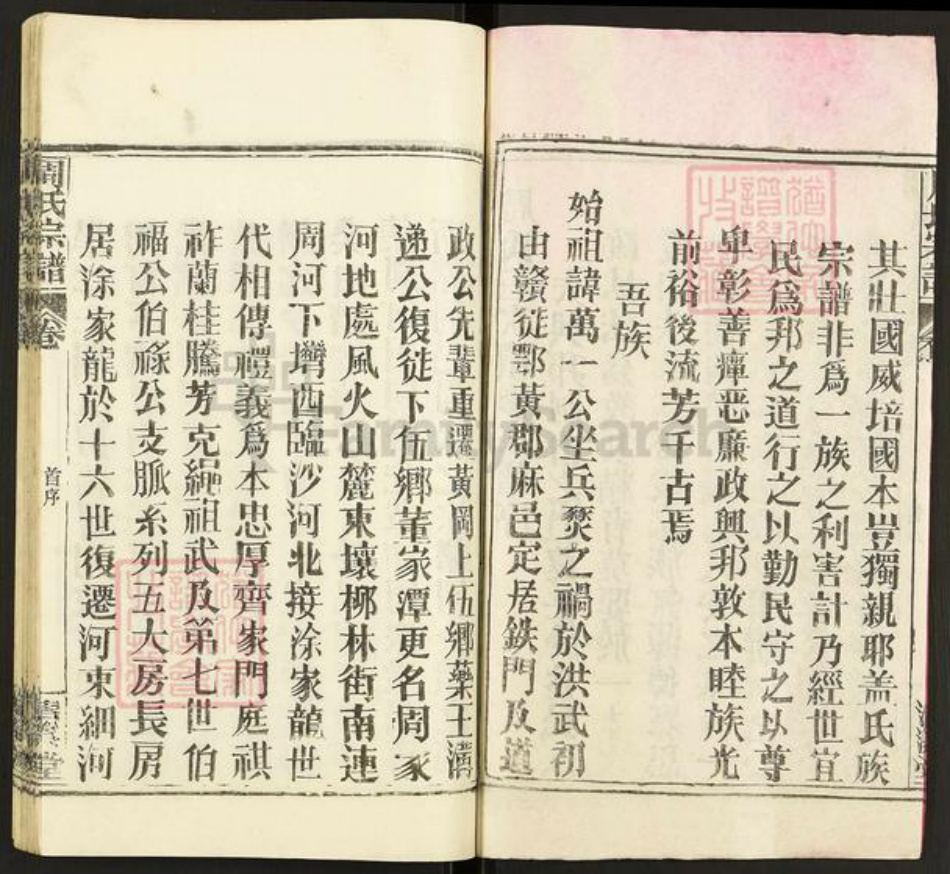 其壯國威培國本豈獨親耶盖氏族
宗譜非爲一族之利害計乃經世宜
民爲邦之道行之以勤民守之以尊
卑彰善癉惡廉政興邦敦本睦族光
前裕後流芳千古焉
吾族
始祖諱萬一公坐兵燹之禍於洪武初
由贛徙鄂黃郡麻邑定居鉄門及道
政公先輩重遷黃岡上伍鄉藥王
递公復徙下伍鄉董家潭更名周家
河地處風火山麓東壤柳林街南連
周河下壪西臨沙河北接涂家龍世
代相傳禮義爲本忠厚齊家門庭祺
祚蘭桂騰芳克繩祖武及第七世伯
福公伯祿公支脈系列五大房長房
居涂家龍於十六世復遷河東細河
周氏宗譜
卷
首序
堂
FamilySearch